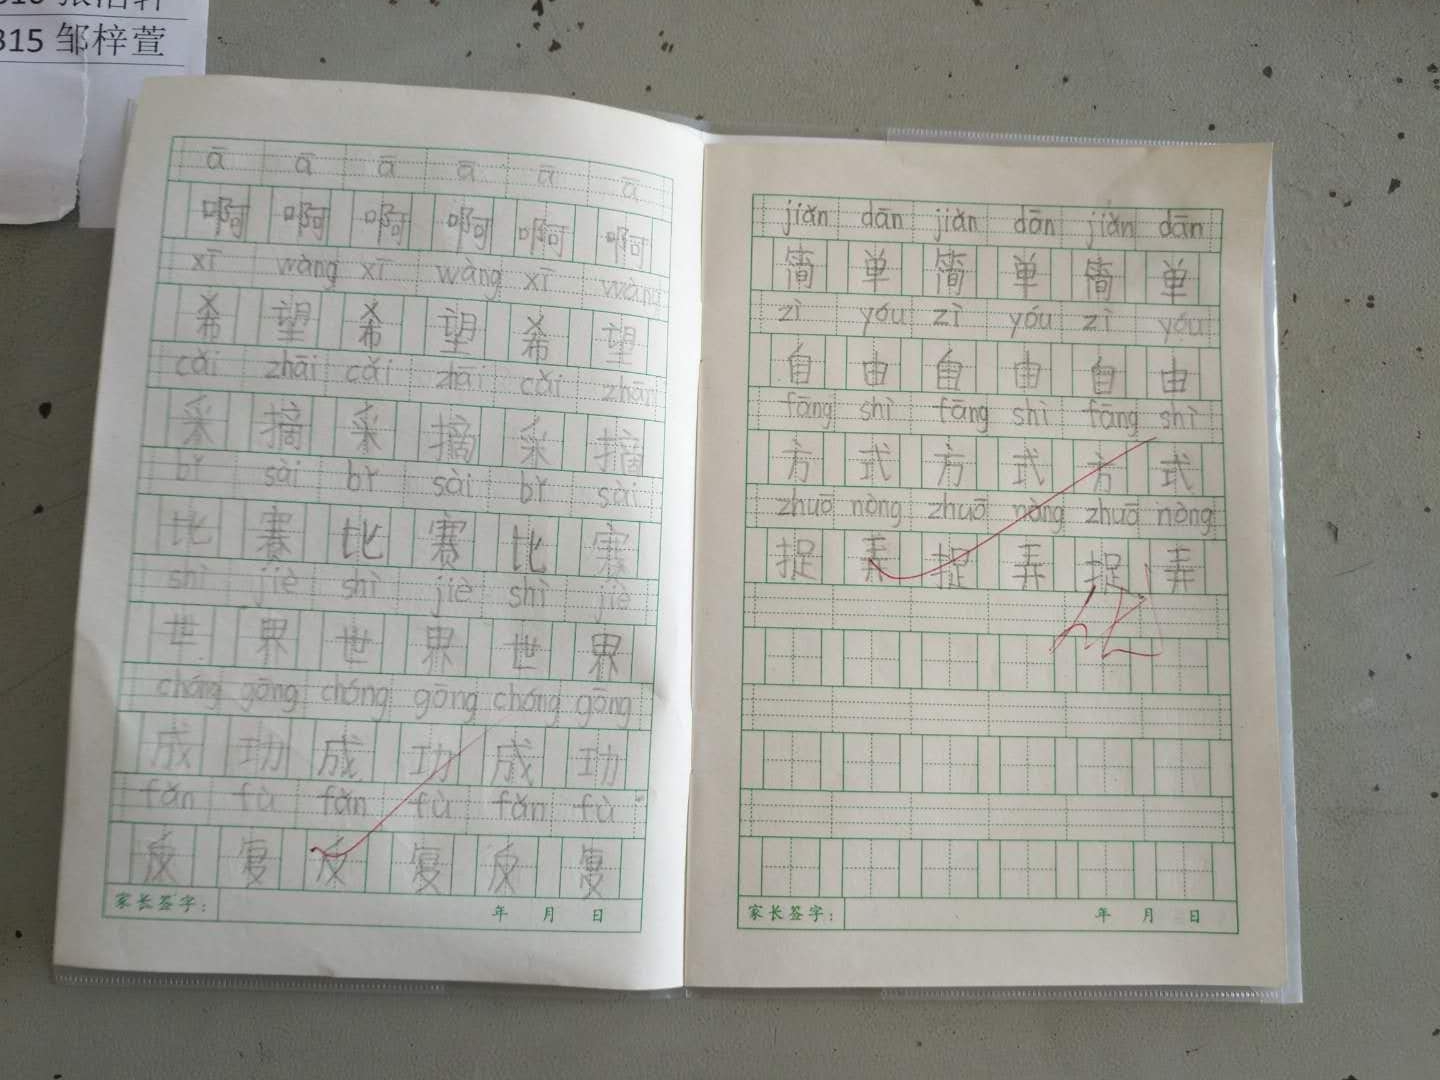 315 邹梓萱
ā ā ā ā ā ā
啊 啊 啊 啊 啊 啊
xī wàng xī wàng xī wàng
希 望 希 望 希 望
cǎi zhāi cǎi zhāi cǎi zhāi
采 摘 采 摘 采 摘
bǐ sài bǐ sài bǐ sài
比 赛 比 赛 比 赛
shì jiè shì jiè shì jiè
世 界 世 界 世 界
chéng gōng chéng gōng chéng gōng
成 功 成 功 成 功
fǎn fù fǎn fù fǎn fù
反 复 反 复 反 复
家长签字： 年 月 日
jiǎn dān jiǎn dān jiǎn dān
简 单 简 单 简 单
zì yóu zì yóu zì yóu
自 由 自 由 自 由
fāng shì fāng shì fāng shì
方 式 方 式 方 式
zhuō nòng zhuō nòng zhuō nòng
捉 弄 捉 弄 捉 弄
家长签字： 年 月 日